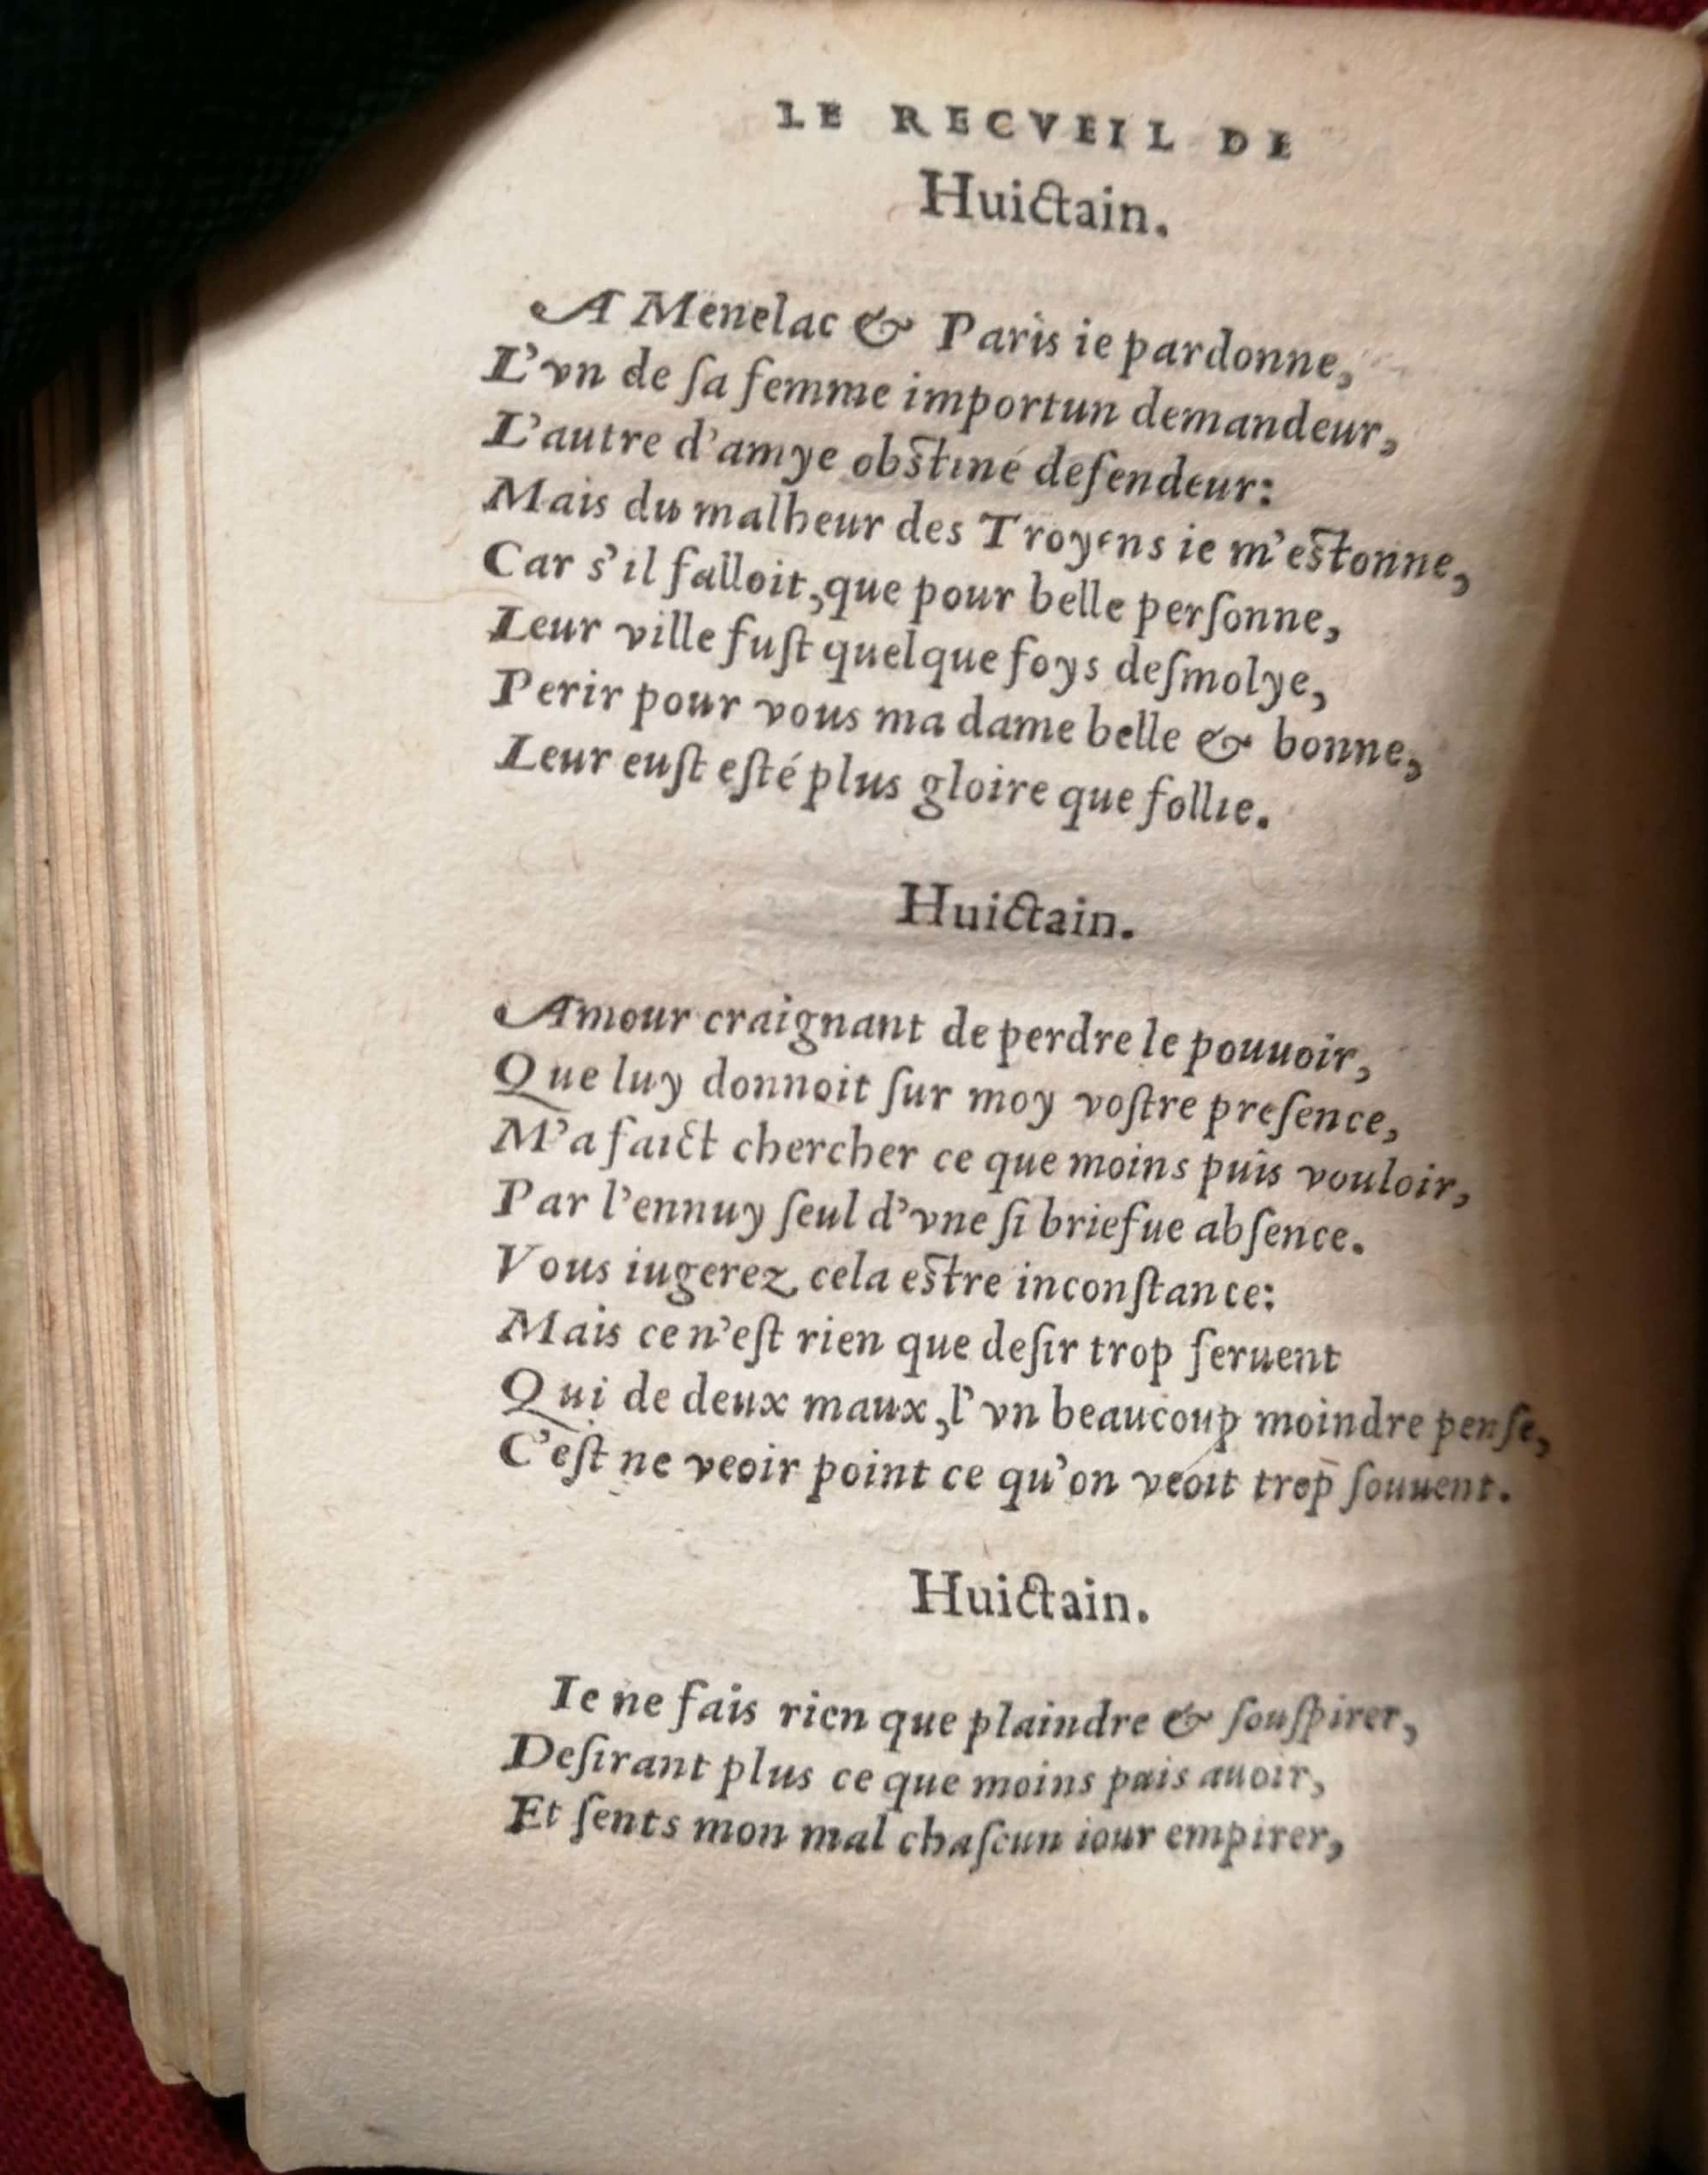 LE RECVEIL DE
Huictain.
A Menelac & Paris ie pardonne,
L'vn de ſa femme importun demandeur,
L'autre d'amye obſtiné defendeur:
Mais du malheur des Troyens ie m'eſtonne,
Car s'il falloit, que pour belle perſonne,
Leur ville fuſt quelque foys deſmolye,
Perir pour vous ma dame belle & bonne,
Leur euſt eſté plus gloire que follie.
Huictain.
Amour craignant de perdre le pouuoir,
Que luy donnoit ſur moy voſtre preſence,
M'a faict chercher ce que moins puis vouloir,
Par l'ennuy ſeul d'vne ſi briefue abſence.
Vous iugerez cela eſtre inconſtance:
Mais ce n'eſt rien que deſir trop feruent
Qui de deux maux, l'vn beaucoup moindre penſe,
C'eſt ne veoir point ce qu'on veoit trop ſouuent.
Huictain.
Ie ne fais rien que plaindre & ſouſpirer,
Deſirant plus ce que moins puis auoir,
Et ſents mon mal chaſcun iour empirer,